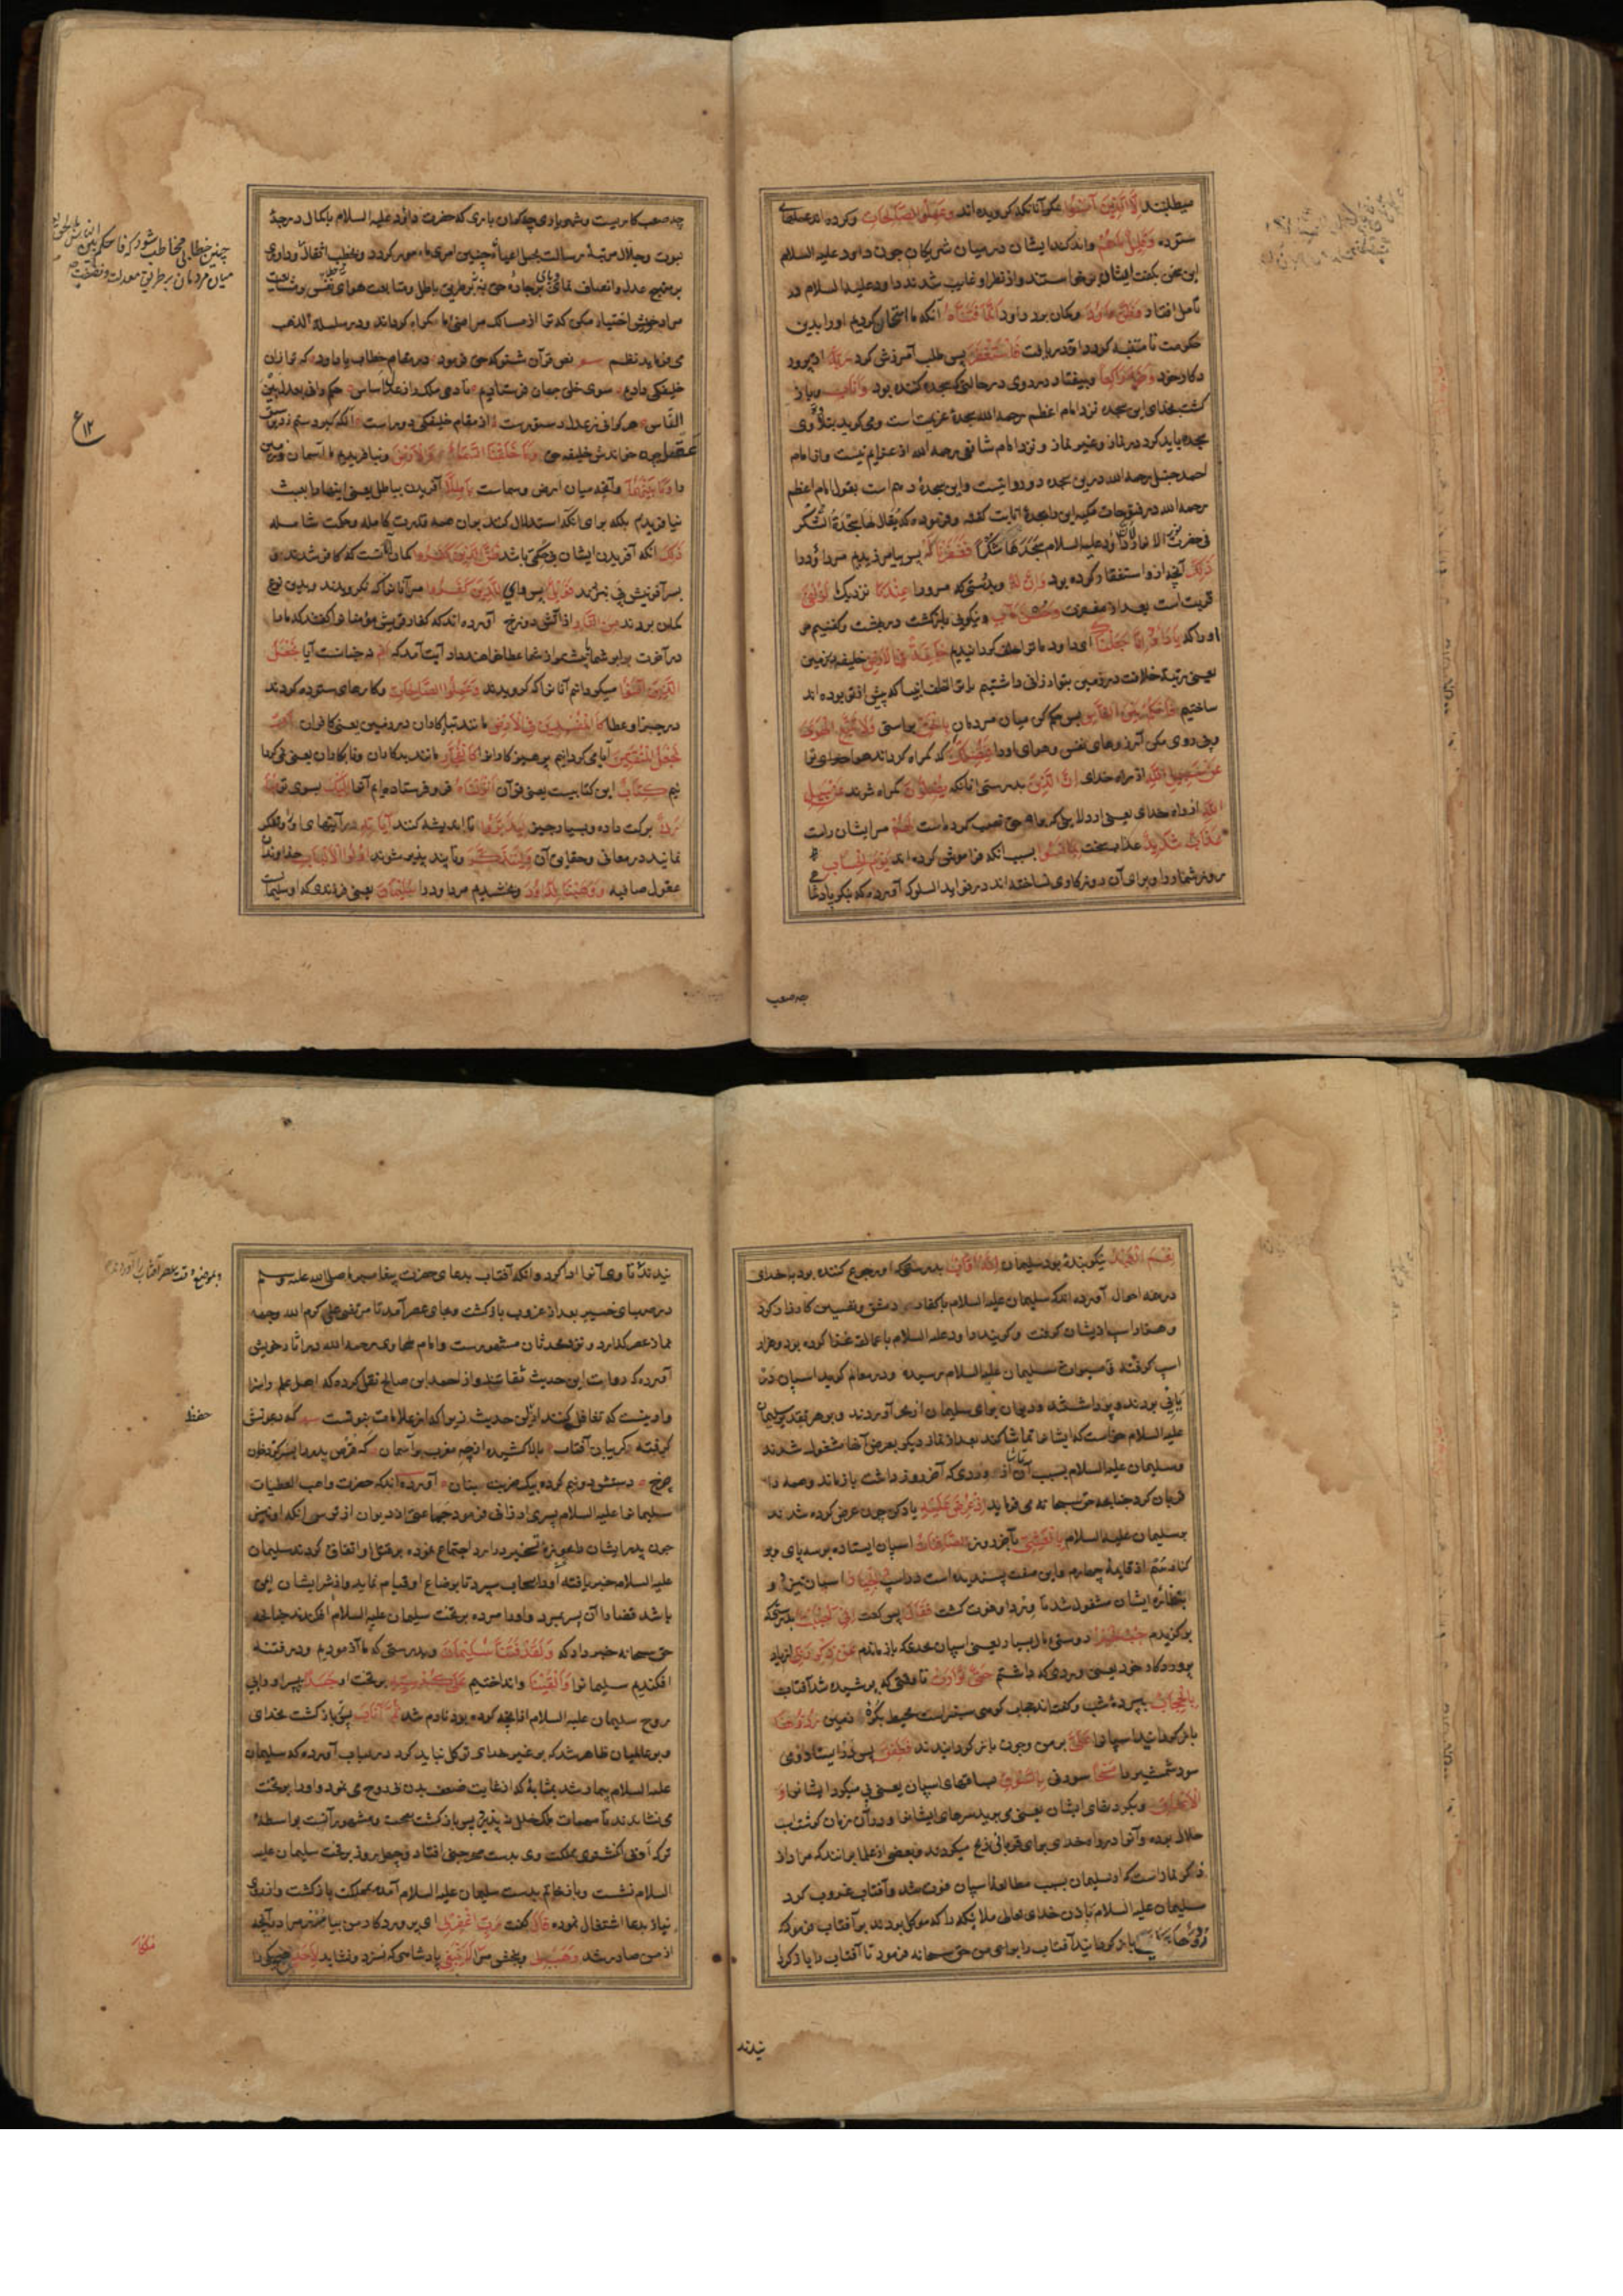 میطلبند الا الذین آمنوا مگر آنانکه کرویده اند وعملوا الصالحات وکرده اند عملهای
ستوده وقلیل ما هم واندکند ایشان در میان شریکان چون داود علیه السلام
این سخن بکفت ایشان برخاستند واز نظر او غایب شدند داود علیه السلام در
تأمل افتاد وظن داود وکمان برد داود انما فتناه آنکه ما امتحان کردیم اورا بدین
حکومت تا متنبه کردد فاستغفر ربه پس طلب آمرزش کرد از پرورد
دکار خود وخر راکعا وبیفتاد بر روی در حالتی که سجده کننده بود واناب وباز
کشت بخدای این سجده نزد امام اعظم رحمه الله سجدهٔ عزیمت است ومی کوید بتلاوت وی
سجده باید کرد در نماز وغیر نماز ونزد امام شافعی رحمه الله از عزایم نیست واز امام
احمد حنبل رحمه الله درین سجده دو روایتست واین سجدهٔ دهم است بقول امام اعظم
رحمه الله در فتوحات مکیه این را سجدهٔ انابت کفته وفرموده که یقال لها سجدة الشکر
فی حضرة الانوار داود علیه السلام سجدها شکرا فغفرنا له پس بیامرزیدیم مر داود را
ذلک آنچه ازو استغفار کرده بود وان له وبدرستی که مرورا عندنا نزدیک ما لزلفی
قربت است بعد از مغفرت وحسن مآب ونیکویی بازکشت در بهشت وکفتیم مر
اورا که یا داود انا جعلناک ای داود ما ترا خلیفه کردانیدیم خلیفة فی الارض خلیفه بر زمین
یعنی مرتبهٔ خلافت در زمین بتو ارزانی داشتیم یا ترا خلف انبیا که پیش از تو بوده اند
ساختیم فاحکم بین الناس پس حکم کن میان مردمان بالحق براستی ولا تتبع الهوی
وپی روی مکن آرزوهای نفس وهوای اورا فیضلک که کمراه کرداند هوا ترا
عن سبیل الله از راه خدای ان الذین بدرستی آنانکه یضلون کمراه شوند عن سبیل
الله از راه خدای یعنی از دلایلی که بر راه حق نصب کرده است لهم مر ایشان راست
عذاب شدید عذاب سخت بما نسوا بسبب آنکه فراموش کرده اند یوم الحساب
روز شمار را وبرای آن روز کاری نساخته اند در فواید السلوک آورده که بنکر پادشاهی
چه صعب
چه صعب کاریست وشهریاری چه کران باری که حضرت داود علیه السلام با کمال درجهٔ
نبوت وجلال مرتبهٔ رسالت بحمل اعباء چنین امری مامور کردد وبخطب
بر منهج عدل وانصاف نمای وپای بر جادهٔ حق نه نه بر طریق باطل ومتابعت هوای نفس
مراد خویش اختیار مکن که ترا از مسالک مراضی ما کمراه کرداند ودر سلسلة الذهب
می فرماید نظم نص قرآن شنو که حق فرمود در مقام خطاب یا داود که ترا زان
خلیفکی دادم سوی خلق جهان فرستادیم تا دهی ملک را ز عدل اساس حکم رانی بعدل بین
الناس هر کرا نه ز عدل دستورست از مقام خلیفکی دورست آنکه کیرد ستم ز دیو سبق
عقل چه خواندش خلیفهٔ حق وما خلقنا السماء والارض ونیافریدیم ما آسمان وزمین
را وما بینهما وآنچه میان ارض وسماست باطلا آفریدن بباطل یعنی اینها را بعبث
نیافریدیم بلکه برای آنکه استدلال کنند بدان همه بر قدرت کامله وحکمت شامله
ذلک آنکه آفریدن ایشان بی حکمتی باشد ظن الذین کفروا کمان آنانست که کافر شدند
بسر آفرینش پی نبردند فویل پس وای للذین کفروا مر آنانرا که نکرویدند وبدین نوع
کمان بردند من النار از آتش دوزخ آورده اند که کفار قریش مؤمنانرا کفتند که ما را
در آخرت برابر شما یا بیشتر از شما عطا خواهند داد آیت آمد که ام نه چنانست آیا نجعل
الذین آمنوا میکردانیم آنانرا که کرویدند وعملوا الصالحات وکارهای ستوده کردند
در جزا وعطا کالمفسدین فی الارض مانند تباه کاران در زمین یعنی کافران ام
نجعل المتقین آیا می کردانیم پرهیزکارانرا کالفجار مانند بدکاران وفاجران یعنی نمی کردا
نیم کتاب این کتابیست یعنی قرآن انزلناه فرو فرستاده ایم آنرا الیک بسوی تو مبا
رک برکت داده وبسیار خیر لیدبروا تا اندیشه کنند آیاته در آیتهای او وتفکر
نمایند در معانی وحقایق آن ولیتذکر وتا پند پذیر شوند اولوا الالباب خداوندان
عقول صافیه ووهبنا لداود وبخشیدیم مر داود را سلیمان یعنی فرزندی که او سلیمانست
چنین خطابی مخاطب شود که فاحکم بین الناس بالحق
میان مردمان بر طریق معدلت ونصفت
١٢ ع
نعم العبد نیکو بنده بود سلیمان انه اواب بدرستی که او رجوع کننده بود با خدای
در همه احوال آورده اند که سلیمان علیه السلام با کفار دمشق ونصیبین کارزار کرد
وهزار اسپ ازیشان کرفت وکویند داود علیه السلام با عمالقه غزا کرده بود وهزار
اسپ کرفته بمیراث سلیمان علیه السلام رسیده ودر معالم کوید اسپان در
یایی بودند وپر داشتند ودیوان برای سلیمان از بحر آوردند وبر هر تقدیر سلیمان
علیه السلام خواست که ایشانرا تماشا کند بعد از نماز دیکر بعرض آنها مشغول شدند
وسلیمان علیه السلام بسبب تماشای آن از وردی که آخر روز داشت بازماند وهمه را
قربان کرد چنانچه حق سبحانه می فرماید اذ عرض علیه یاد کن چون عرض کرده شدند
بر سلیمان علیه السلام بالعشی بآخر روز الصافنات اسپان ایستاده بر سه پای وبر
کناره سم از قایمهٔ چهارم واین صفت پسندیده است در اسپ الجیاد اسپان تیزرو
بنظاره ایشان مشغول شد تا ورد او فوت کشت فقال پس کفت انی احببت بدرستی که
برکزیدم حب الخیر دوستی مال بسیار یعنی اسپان بحدی که بازماندم عن ذکر ربی از یاد
پروردکار خود یعنی وردی که داشتم حتی توارت تا وقتی که پوشیده شد آفتاب
بالحجاب بپردهٔ شب وکفته اند حجاب کوهی سبزست محیط بکرهٔ زمین ردوها
بازکردانید اسپانرا علی بر من وچون بازکردانیدند فطفق پس در ایستاد وی
سود شمشیر را مسحا سودنی بالسوق بساقهای اسپان یعنی پی میکرد ایشانرا و
الاعناق وبکردنهای ایشان یعنی می برید سرهای ایشانرا ودر آن زمان کوشت اسپ
حلال بوده وآنرا در راه خدای برای قربانی ذبح میکردند وبعضی از علما برانند که مراد از
ذکر نمازست که از سلیمان بسبب مطالعهٔ اسپان فوت شد وآفتاب غروب کرد
سلیمان علیه السلام باذن خدای تعالی ملایکه را که موکل بودند بر آفتاب فرمود که
ردوها علی بازکردانید آفتاب را برای من حق سبحانه فرمود تا آفتاب را بازکردا
نیدند
نیدند تا وی آنرا ادا کرد وآنکه آفتاب بدعای حضرت پیغامبر ما صلی الله علیه وسلم
در صهبای خیبر بعد از غروب بازکشت وبجای عصر آمد تا مرتضی علی کرم الله وجهه
نماز عصر کذارد ونزد محدثان مشهورست وامام طحاوی رحمه الله در آثار خویش
آورده که رواة این حدیث ثقاتند واز احمد ابن صالح نقل کرده که اهل علم را سزا
وار نیست که تغافل کنند از این حدیث زیرا که از علامات نبوتست
کرفته کریبان آفتاب بالا کشیده از چه مغرب بر آسمان که قرص بدر را
چرخ دستش دو نیم کرده بیک ضربت بنان آورده اند که حضرت واهب العطیات
سلیمانرا علیه السلام پسری ارزانی فرمود جماعتی از دیوان از ترس آنکه او نیز
چون پدر ایشان را تسخیر دارد اجتماع نموده بر قتل او اتفاق کردند سلیمان
علیه السلام خبر یافته اورا بسحاب سپرد تا برضاع او قیام نماید واز شر ایشان ایمن
باشد قضا را آن پسر بمرد واورا مرده بر تخت سلیمان علیه السلام افکندند چنانچه
حق سبحانه خبر داد که ولقد فتنا سلیمان وبدرستی که ما آزمودیم ودر فتنه
افکندیم سلیمانرا والقینا وانداختیم علی کرسیه بر تخت او جسدا پسر او را بی
روح سلیمان علیه السلام از آنچه کرده بود نادم شد ثم اناب پس بازکشت بخدای
وبر عالمیان ظاهر شد که بر غیر خدای توکل نباید کرد آورده که سلیمان
علیه السلام بیمار شد بمثابهٔ که از غایت ضعف بدن بی روح می نمود واورا بر تخت
می نشاندند تا مهمات ملک خلل نپذیرد پس بازکشت بصحت ومشهور آنست بواسطهٔ
ترک اولی انکشتری مملکت وی بدست صخر جنی افتاد وچهل روز بر تخت سلیمان علیه
السلام نشست وباز خاتم بدست سلیمان علیه السلام آمده بمملکت بازکشت
نیاز بدعا اشتغال نموده قال کفت رب اغفر لی ای پروردکار من بیامرز مرا آنچه
از من صادر شد وهب لی وببخش مرا ملکا لا ینبغی پادشاهی که نسزد ونشاید لاحد هیچ یکی را
حفظ
ملکا